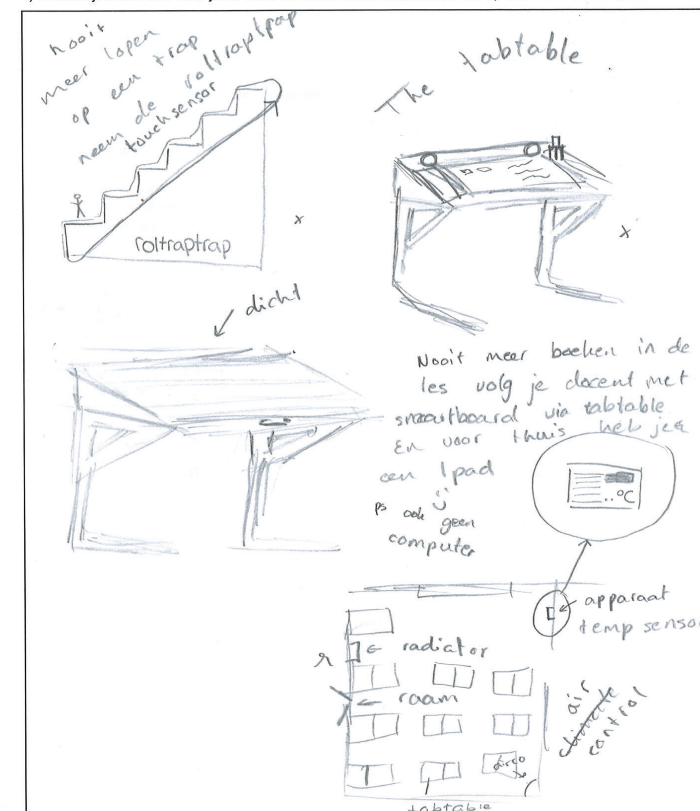 nooit
meer lopen
op een trap
neem de roltraptrap
touchsensor
roltraptrap
The tabtable
x
x
dicht
Nooit meer boeken in de
les volg je docent met
smartboard via tabtable
En voor thuis heb je
een Ipad
ps ook geen
computer
..°C
apparaat
temp senso
r
radiator
raam
air
control
tabtable